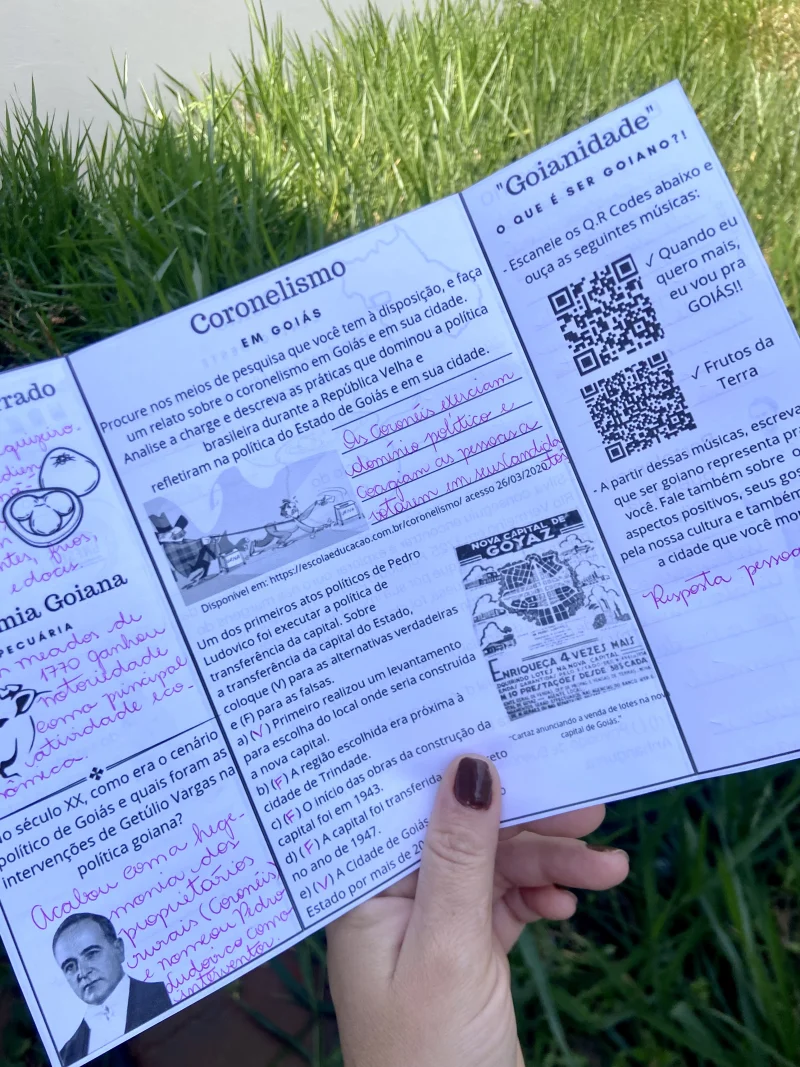 rado
equizeiro.
ntes, frios,
e doces.
mia Goiana
PECUÁRIA
meados de
1770 ganhou
notoriedade
como principal
atividade eco-
nômica.
o século XX, como era o cenário
político de Goiás e quais foram as
intervenções de Getúlio Vargas na
política goiana?
Acabou com a hege-
monia dos
proprietários
rurais (Coronéis)
e nomeou Pedro
Ludovico como
interventor.
Coronelismo
EM GOIÁS
Procure nos meios de pesquisa que você tem à disposição, e faça
um relato sobre o coronelismo em Goiás e em sua cidade.
Analise a charge e descreva as práticas que dominou a política
brasileira durante a República Velha e
refletiram na política do Estado de Goiás e em sua cidade.
Os Coronéis exerciam
domínio político e
Coagiam as pessoas a
votarem em seus candida
tos
Disponível em: https://escolaeducacao.com.br/coronelismo/ acesso 26/03/2020
Um dos primeiros atos políticos de Pedro
Ludovico foi executar a política de
transferência da capital. Sobre
a transferência da capital do Estado,
coloque (V) para as alternativas verdadeiras
e (F) para as falsas.
a) (V) Primeiro realizou um levantamento
para escolha do local onde seria construída
a nova capital.
b) (F) A região escolhida era próxima à
cidade de Trindade.
c) (F) O início das obras da construção da
capital foi em 1943.
d) (F) A capital foi transferida eto
no ano de 1947.
e) (V) A Cidade de Goiás
Estado por mais de 20
NOVA CAPITAL DE
GOYAZ
ENRIQUEÇA 4 VEZES MAIS
ADQUIRINDO LOTES NA NOVA CAPITAL
10 PRESTAÇÕES DESDE
"Cartaz anunciando a venda de lotes na nova
capital de Goiás."
"Goianidade"
O QUE É SER GOIANO?!
- Escaneie os Q.R Codes abaixo e
ouça as seguintes músicas:
✓ Quando eu
quero mais,
eu vou pra
GOIÁS!!
✓ Frutos da
Terra
- A partir dessas músicas, escreva
que ser goiano representa pra
você. Fale também sobre o
aspectos positivos, seus gos
pela nossa cultura e também
a cidade que você mor
Resposta pessoa